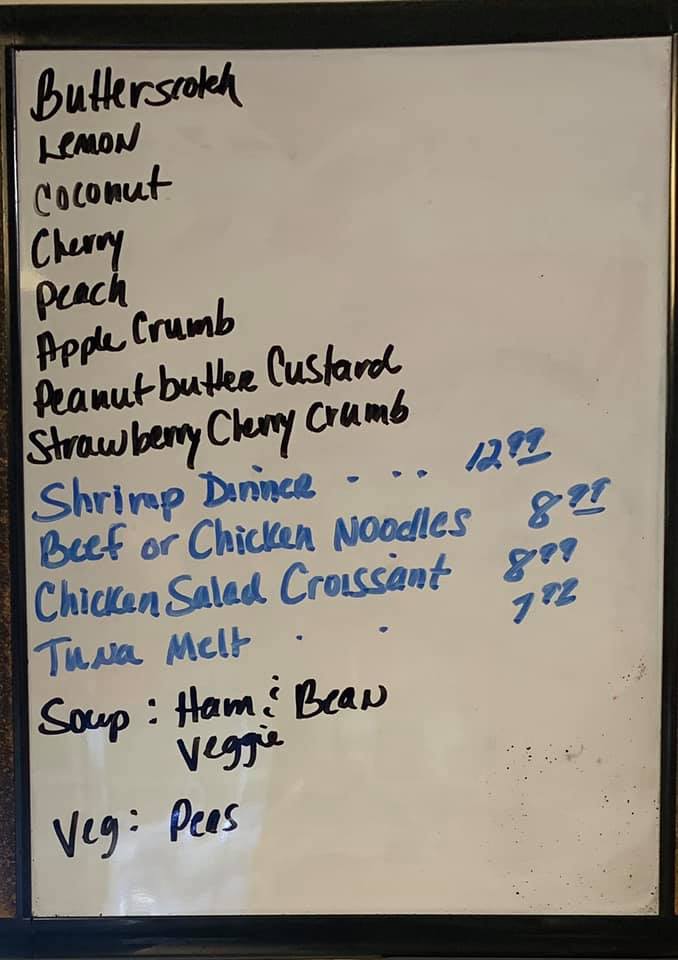 Butterscotch
Lemon
Coconut
Cherry
Peach
Apple Crumb
Peanut butter Custard
Strawberry Cherry Crumb
Shrimp Dinner . . . . 12.99
Beef or Chicken Noodles 8.99
Chicken Salad Croissant 8.99
Tuna Melt . .
Soup : Ham & Bean
Veggie
Veg : Peas